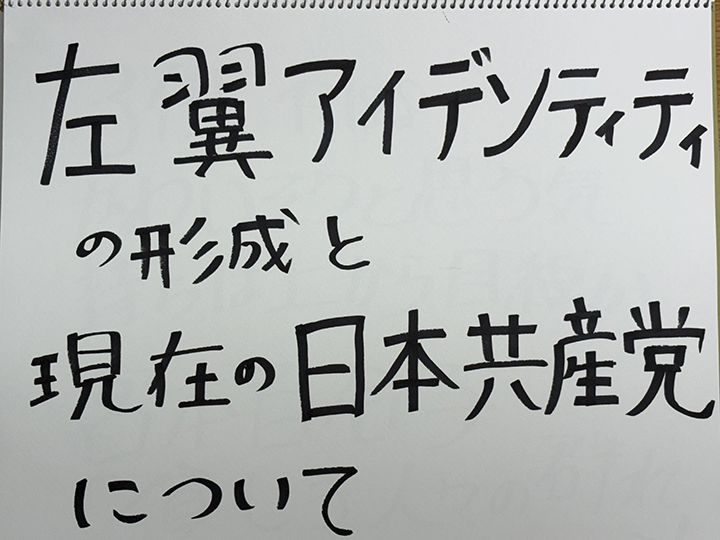 左翼アイデンティティ
の形成と
現在の日本共産党
について